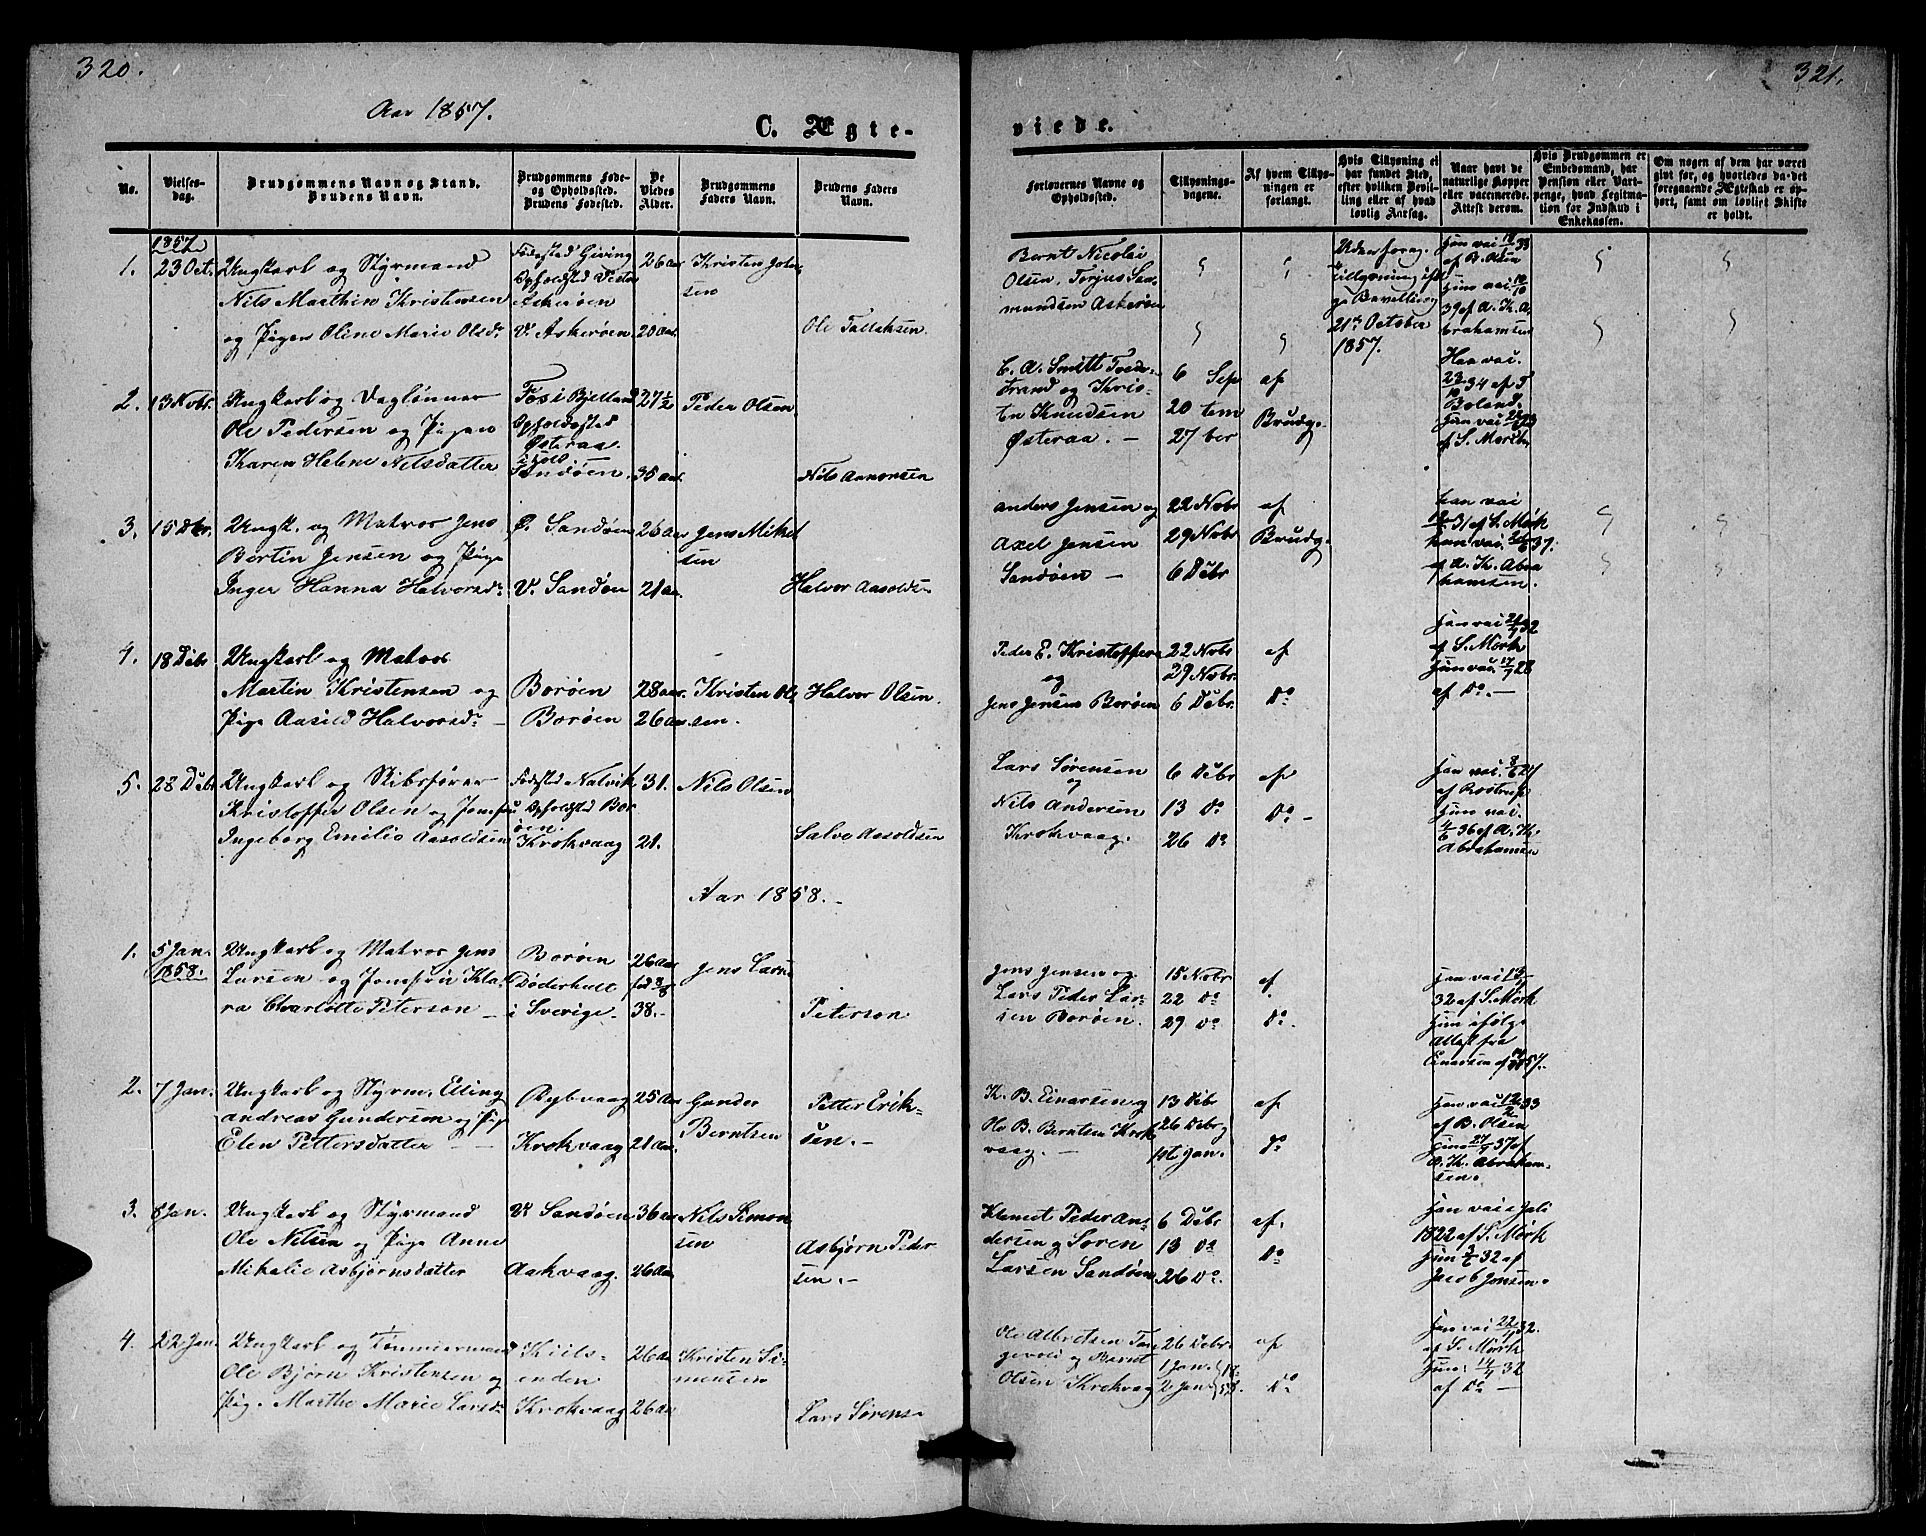 320.
321.
Aar 1857.
C. Ægte-
viede.
No.
Vielses-
dag.
Brudgommens Navn og Stand.
Brudens Navn.
Brudgommens Føde-
og Opholdssted.
Brudens Fødested.
De
Viedes
Alder.
Brudgommens
Faders Navn.
Brudens Faders
Navn.
Forlovernes Navne og
Opholdssted.
Tillysnings-
dagene.
Af hvem Tillys-
ningen er
forlangt.
Hvis Tillysning ei
har fundet Sted,
efter hvilken Bevil-
ling eller af hvad
lovlig Aarsag.
Naar havt de
naturlige Kopper
eller vaccinerede.
Attest derom.
Hvis Brudgommen er
Embedsmand, har
Pension eller Vart-
penge, hvad Legitima-
tion for Indskud i
Enkekassen.
Om nogen af dem har været
gift før, og hvorledes da det
foregaaende Ægteskab er op-
hørt, samt om lovligt Skifte
er holdt.
1857
1. 23 Oct. Ungkarl og Styrmand
Nils Mathin Kristensen
og Pigen Oline Marie Olsdr
Fødested Giving
Opholdsted Vestre
Askerøen
V. Askerøen
26 aar
20 aar.
Kristen John-
sen
Ole Tallaksen.
Bernt Nicolai
Olsen, Torjus Sa-
mundsen Askerøen
Uden foreg.
tillysning ifl-
ge Bevilling
21de October
1857.
Han vac 33
af B. Olsen
Hun vac 10/10
39 af A. Th. A-
brahamsen
2. 13 Nobr. Ungkarl og Daglønner
Ole Pedersen og Pigen
Karen Helene Nilsdatter
Fosi Bjelland
Opholdssted
Østeraa.
Sandøen
27 1/2
35 aar.
Peder Olsen
Nils Aanonsen
E. A. Smitt Tvede-
strand og Kris-
ten Knudsen
Østeraa. -
6 Sep
20 tem
27 ber
af
Brudg.
34 af
Boland.
af S. Mørk
3. 15 Dbr. Ungk. og Matros Jens
Bertin Jensen og Pige
Inger Hanna Halvorsdr
Ø. Sandøen
V. Sandøen
26 aar
21 aar.
Jens Mikel
sen
Halvor Aasolds-
Anders Jensen og
Axel Jensen
Sandøen -
22 Nobr
29 Nobr
6 Debr
af
Brudg.
han vac
31 af S. Mørk
hun vac. 37.
af A. Th. Abra
hamsen.
4. 18 Debr Ungkarl og Matros
Martin Kristensen og
Pige Aasild Halvorsdr
Borøen
Borøen
28 aar.
26 aar
Kristen Ol-
sen.
Halvor Olsen.
Peder E. Kristoffers
og
Jens Jensen Borøen
22 Nobr
29 Nobr.
6 Debr.
af
Do
Han vac 32
af S. Mørk
Hun vac. 28
af Do. -
5. 28 Debr Ungkarl og Skibsfører
Kristoffer Olsen og Jomfru
Ingeborg Emilie Aasoldsen
Fødested Nalvik
Opholdsted Bor
øen.
Krokvaag
31.
21.
Nils Olsen
Salve Aasoldsen
Lars Sørensen
og
Nils Andersen
Krokvaag.
6 Debr
13 Do
26 Do
af
Do -
Han vac. 27
af Rostrup
Hun vac.
36 af A. Th.
Abrahamsen
Aar 1858. -
1. 5 Jan.
1858.
Ungkarl og Matros Jens
Larsen og Jomfru Kla-
ra Charlotte Peterson
Borøen
Døderhult
i Sverige
26 aar
38. -
Jens Larse
Peterson
Jens Jensen og
Lars Peder Lar-
sen Borøen.
15 Nobr
22 Do
29 Do
af
Do.
Han vac
32 af S. Mørk
Hun ifølge
Attest fra
Einarsen af 57.
2. 7 Jan. Ungkarl og Styrm. Elling
Andreas Gundersen og Pige
Elen Pettersdatter
Krokvaag
25 aar
21 aar.
Gunder
Berntsen
Petter Erik-
sen. -
Th. B. Einarsen og
Ole B. Berntsen Krok
vaag. -
13 Debr
26 Debr
1ste Jan.
af
Do
Han vac 33
af B. Olsen
37 af
A. Th. Abraham-
sen.
3. 8 Jan. Ungkarl og Styrmand
Ole Nilsen og Pige Anne
Mikalie Asbjørnsdatter
V. Sandøen
Aakvaag.
36 aar
26 aar
Nils Simon
sen
Asbjørn Peder
sen. -
Klemet Peder An-
dersen og Søren
Larsen Sandøen
6 Debr
13 Do
26 Do.
af.
Do
Han vac i Juli
1822 af S. Mørk
Hun 32 af
Jacob Jonsen.
4. 22 Jan. Ungkarl og Tømmermand
Ole Bjørn Kristensen og
Pige. Marthe Marie Larsdr
Kiils-
enden
Krokvaag
26 aar
26 aar
Kristen Si-
monsen
Lars Sørens-
Ole Albretsen Tor-
gevold og Bernt
Olsen Krokvaag
26 Debr.
1 Jan.
2 Jan
af
Do
Han vac 32.
af S. Mørk
Hun: 32
af Do -